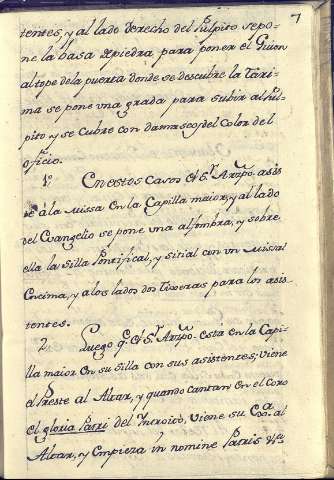 7
tentes, y al lado derecho del Pulpito se po-
ne la basa de piedra para poner el Guion
al tope de la puerta donde se descubre la Tari-
ma se pone una grada para subir al Pul-
pito y se Cubre con damasco del Color del
oficio.
1º. En estos Casos el Sr. Arzpo. asis
te á la Missa en la Capilla maior, y al lado
del Evangelio se pone una alfombra, y sobre
ella la Silla Pontifical, y sitial con un Missal
Encima, y a los lados dos Tixeras para los asis
tentes.
2. Luego q. el Sr. Arzpo. esta en la Capi-
lla maior en su Silla con sus asistentes; viene
el Preste al Altar, y quando cantan en el Coro
el gloria Patri del Introito, viene su Exa. al
Altar, y empieza in nomine Patris &c.